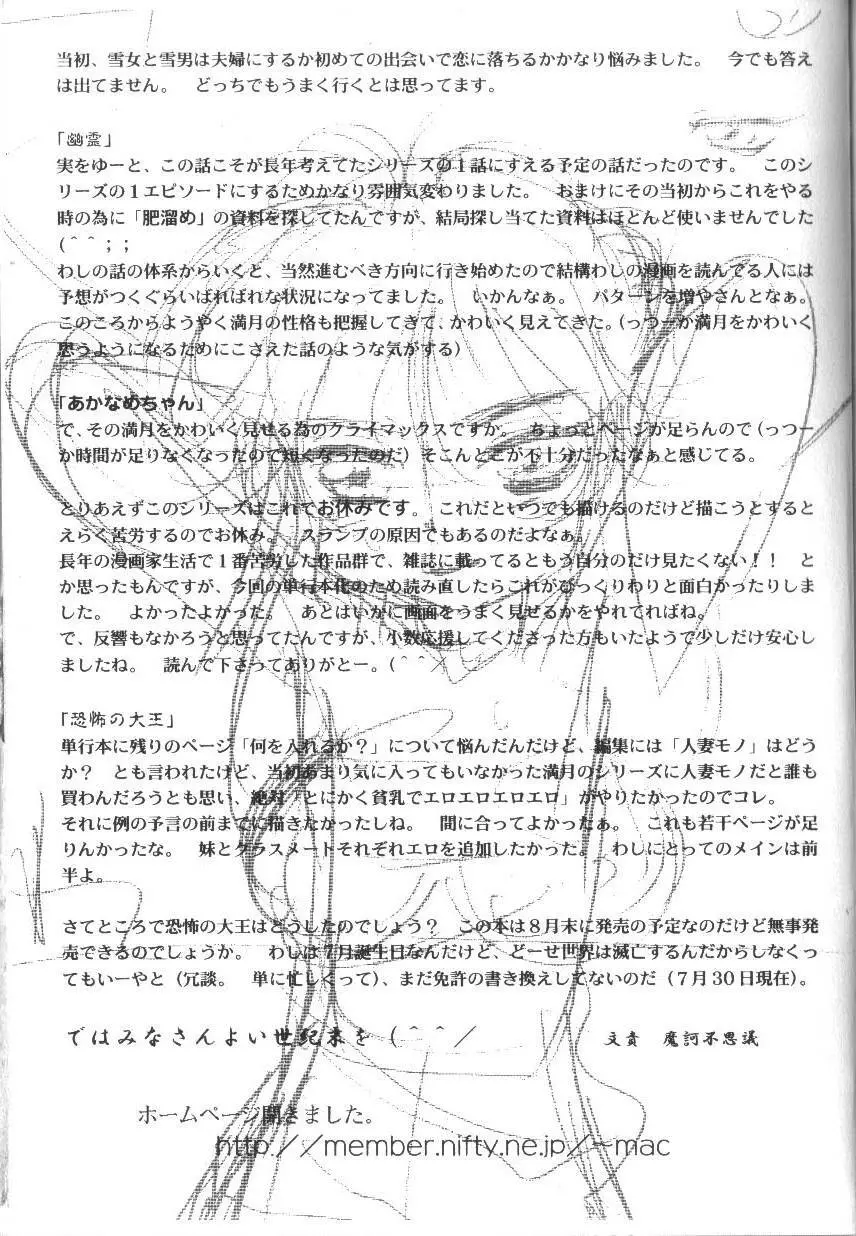 当初、雪女と雪男は夫婦にするか初めての出会いで恋に落ちるかかなり悩みました。　今でも答え
は出てません。　どっちでもうまく行くとは思ってます。
「幽霊」
実をゆーと、この話こそが長年考えてたシリーズの１話にすえる予定の話だったのです。　このシ
リーズの１エピソードにするためかなり雰囲気変わりました。　おまけにその当初からこれをやる
時の為に「肥溜め」の資料を探してたんですが、結局探し当てた資料はほとんど使いませんでした
(＾＾；；
わしの話の体系からいくと、当然進むべき方向に行き始めたので結構わしの漫画を読んでる人には
予想がつくぐらいばればれな状況になってました。　いかんなぁ。　パターンを増やさんとなぁ。
このころからようやく満月の性格も把握してきて、かわいく見えてきた。（っつーか満月をかわいく
思うようになるためにこさえた話のような気がする）
「あかなめちゃん」
で、その満月をかわいく見せる為のクライマックスですか。　ちょっとページが足らんので（っつー
か時間が足りなくなったので短くなったのだ）そこんとこが不十分だったなぁと感じてる。
とりあえずこのシリーズはこれでお休みです。　これだといつでも描けるのだけど描こうとすると
えらく苦労するのでお休み。　スランプの原因でもあるのだよなぁ。
長年の漫画家生活で１番苦労した作品群で、雑誌に載ってるともう自分のだけ見たくない！！　と
か思ったもんですが、今回の単行本化のため読み直したらこれがびっくりわりと面白かったりしま
した。　よかったよかった。　あとはいかに画面をうまく見せるかをやれてればね。
で、反響もなかろうと思ってたんですが、小数応援してくださった方もいたようで少しだけ安心し
ましたね。　読んで下さってありがとー。(＾＾／
「恐怖の大王」
単行本に残りのページ「何を入れるか？」について悩んだんだけど、編集には「人妻モノ」はどう
か？　とも言われたけど、当初あまり気に入ってもいなかった満月のシリーズに人妻モノだと誰も
買わんだろうとも思い、絶対「とにかく貧乳でエロエロエロエロ」がやりたかったのでコレ。
それに例の予言の前までに描きたかったしね。　間に合ってよかったぁ。　これも若干ページが足
りんかったな。　妹とクラスメートそれぞれエロを追加したかった。　わしにとってのメインは前
半よ。
さてところで恐怖の大王はどうしたのでしょう？　この本は８月末に発売の予定なのだけど無事発
売できるのでしょうか。　わしは７月誕生日なんだけど、どーせ世界は滅亡するんだからしなくっ
てもいーやと（冗談。　単に忙しくって）、まだ免許の書き換えしてないのだ（７月３０日現在）。
ではみなさんよい世紀末を(＾＾／　　　文責　魔訶不思議
ホームページ開きました。
http://member.nifty.ne.jp/~mac